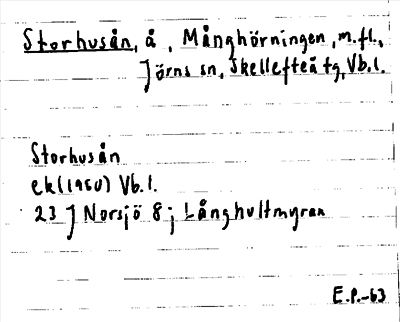 Storhusån, å, Månghörningen, m.fl.,
Jörns sn, Skellefteå tg, Vb.l.
Storhusån
ek(1960) Vb.l.
23 J Norsjö 8; Långhultmyran
E.P.-63